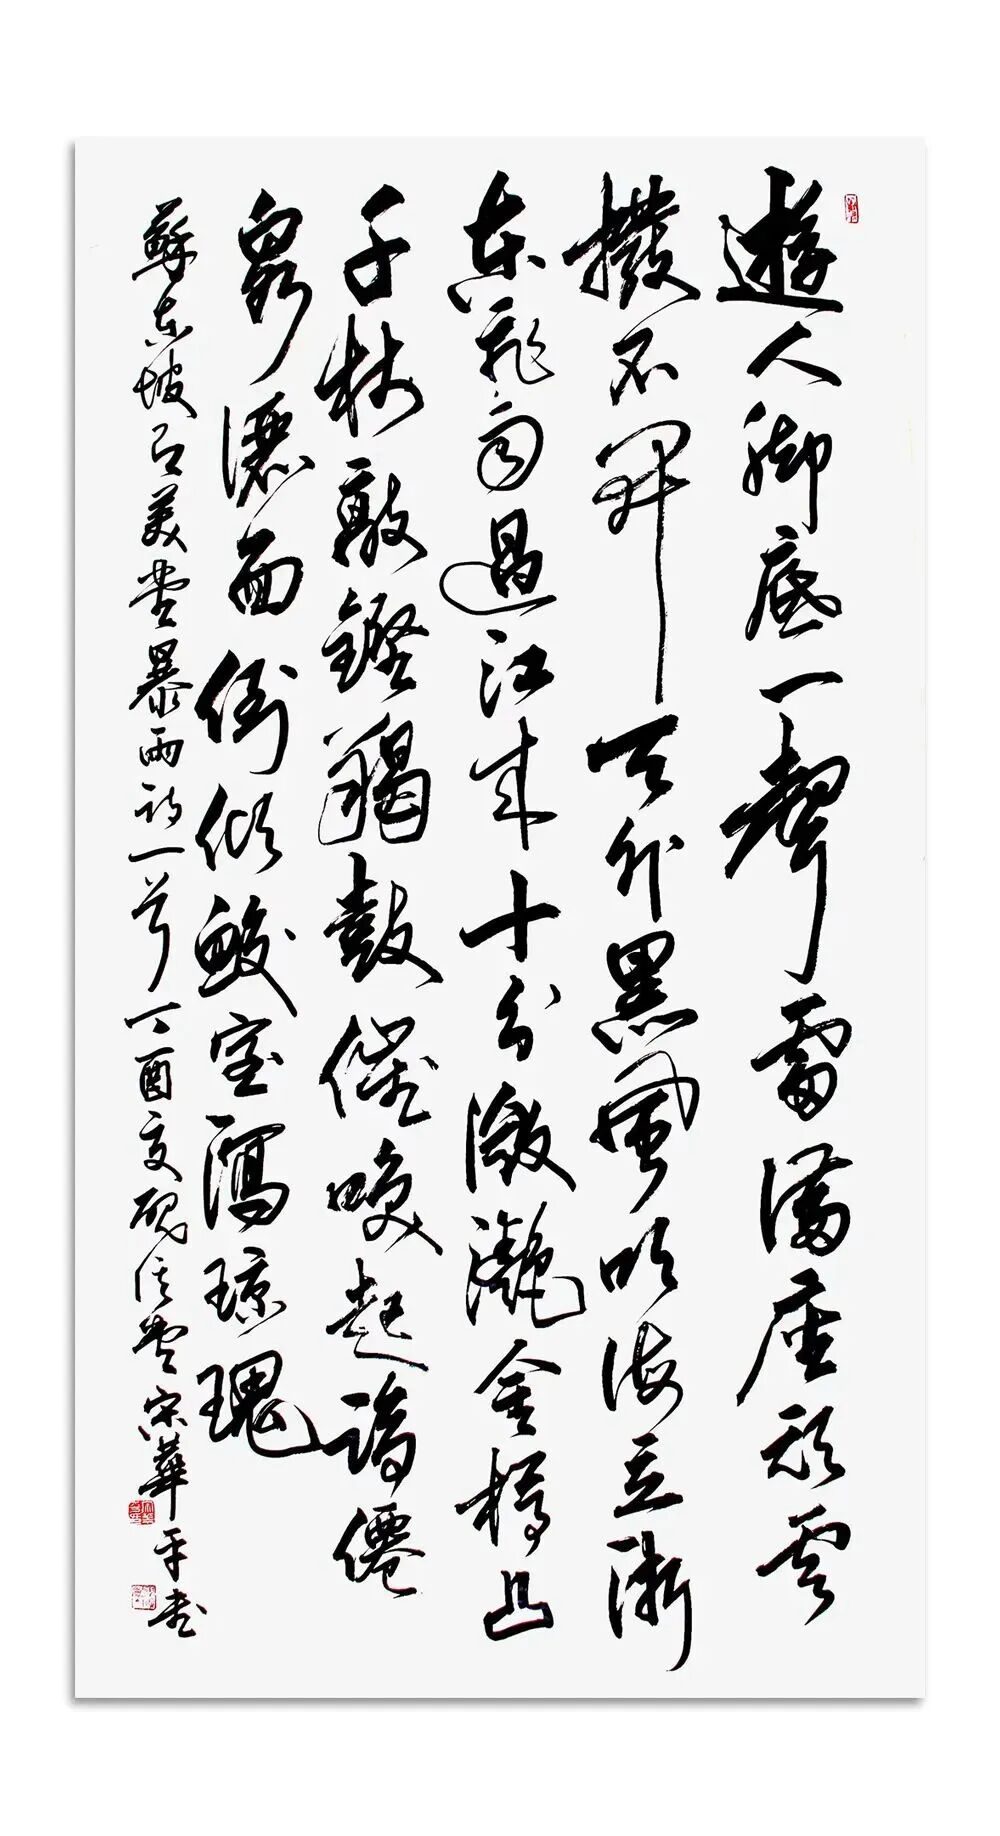 遊人脚底一聲雷滿座頑雲
撥不開天外黑風吹海立浙
東飛雨過江來十分瀲灩金樽凸
千杖敲鏗羯鼓催喚起謫僊
泉灑面倒傾鮫室瀉瓊瑰
蘇東坡有美堂暴雨詩一首丁酉夏堂宋華平書